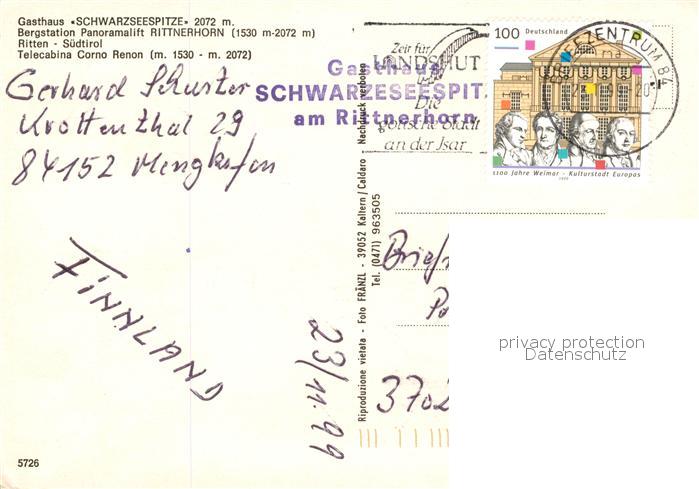 Gasthaus «SCHWARZSEESPITZE» 2072 m.
Bergstation Panoramalift RITTNERHORN (1530 m-2072 m)
Ritten - Südtirol
Telecabina Corno Renon (m. 1530 - m. 2072)
Gerhard Schuster
Krottenthal 29
84152 Mengkofen
FINNLAND
23/11.99
5726
Gasthaus
SCHWARZESEESPIT
am Rittnerhorn
Zeit für
LANDSHUT
Die
gotische Stadt
an der Isar
100 Deutschland
1100 Jahre Weimar - Kulturstadt Europas
1999
BRIEFZENTRUM 84
Riproduzione vietata - Foto FRÄNZL - 39052 Kaltern / Caldaro Nachdruck verboten
Tel. (0471) 963505
Brief
Po
3702
privacy protection
Datenschutz